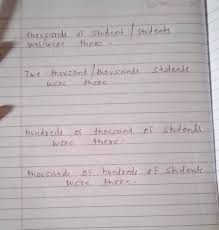 thousands of student / students
was/were there.
Two thousand / thousands students
were there
Hundreds of thousand of students
were there.
thousands of hundreds of students
were there.